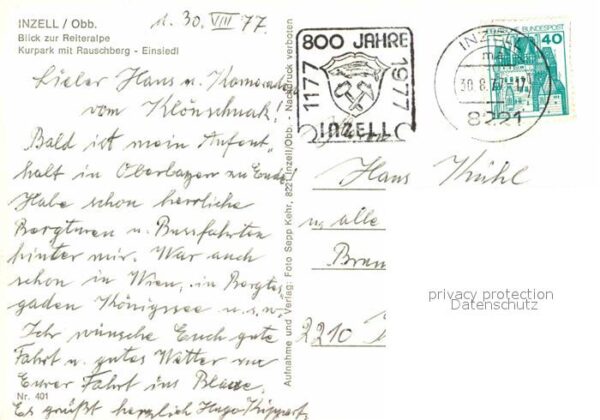 INZELL / Obb.
Blick zur Reiteralpe
Kurpark mit Rauschberg - Einsiedl
d. 30. VIII 77.
Lieber Hans u. Kameraden
vom Klönschnak!
Bald ist mein Aufent-
halt in Oberbayern zu Ende!
Habe schon herrliche
Bergturen u. Busfahrten
hinter mir. War auch
schon in Wien, in Berchtes-
gaden Königssee u.s.w.
Ich wünsche Euch gute
Fahrt u. gutes Wetter zur
Eurer Fahrt ins Blaue,
Es grüßt herzlich Hugo
Nr. 401
Aufnahme und Verlag: Foto Sepp Kehr, 8221 Inzell/Obb. - Nachdruck verboten
800 JAHRE
1177
1977
INZELL
INZELL
30.8.77
8221
DEUTSCHE BUNDESPOST
40
Hans Kühl
u. alle
2210
privacy protection
Datenschutz